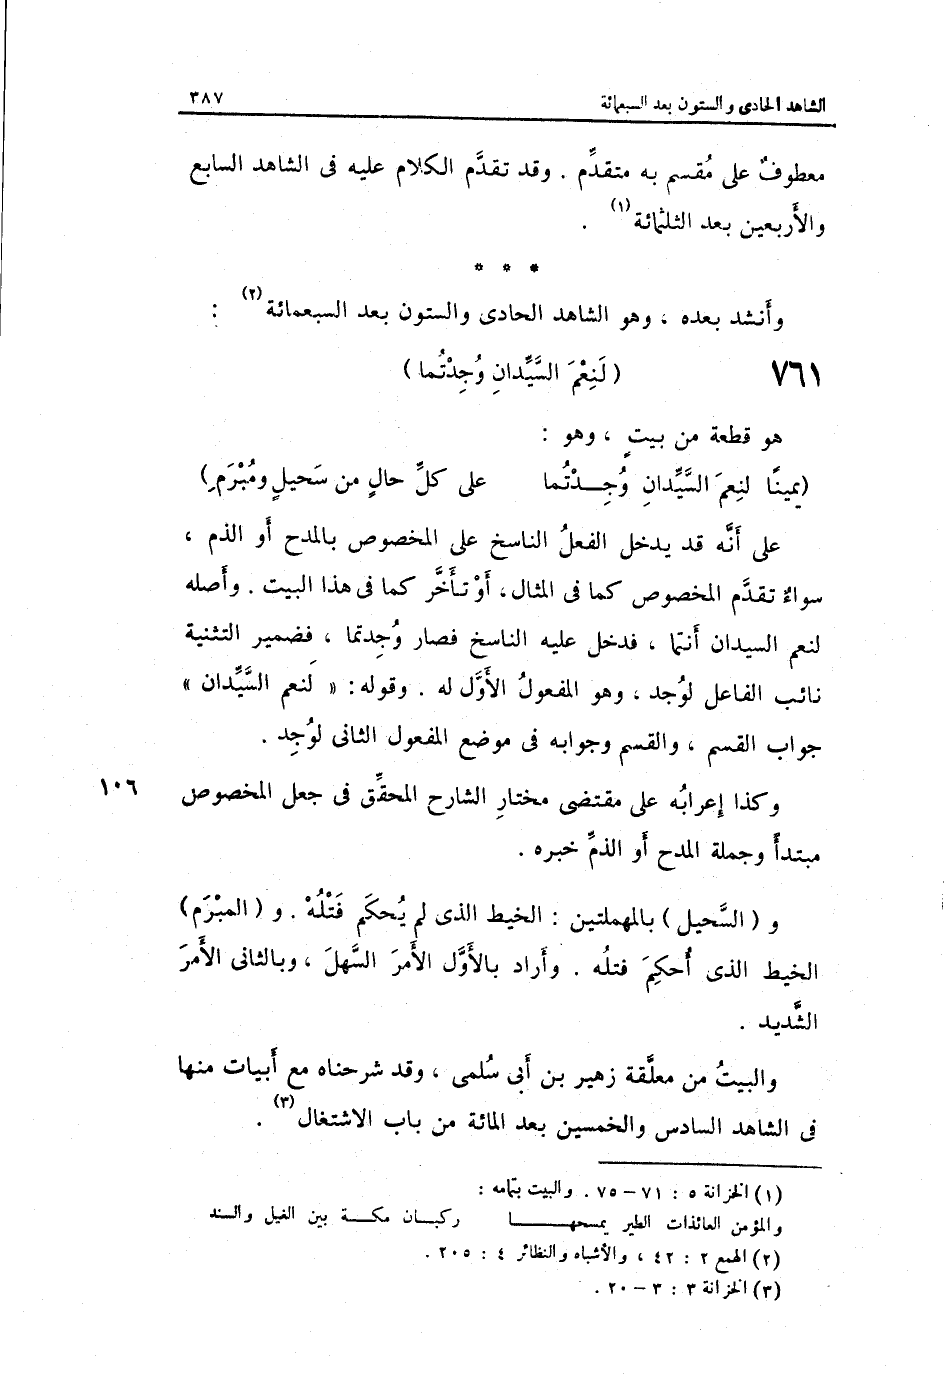 الشاهد الحادى والستون بعد السبعمائة ٣٨٧
معطوفٌ على مُقسم به متقدِّم . وقد تقدَّم الكلام عليه فى الشاهد السابع
والأَربعين بعد الثلثمائة(١) .
* * *
وأَنشد بعده ، وهو الشاهد الحادى والستون بعد السبعمائة(٢) :
٧٦١ ( لَنِعْمَ السَّيِّدانِ وُجِدْتُما )
هو قطعة من بيتٍ ، وهو :
(يمينًا لنِعمَ السَّيِّدانِ وُجِـــدْتُما على كلِّ حالٍ من سَحيلٍ ومُبْرَمِ)
على أَنَّه قد يدخل الفعلُ الناسخ على المخصوص بالمدح أَو الذم ،
سواءٌ تقدَّم المخصوص كما فى المثال ، أَوْ تأَخَّر كما فى هذا البيت . وأَصله
لنعم السيدان أنتما ، فدخل عليه الناسخ فصار وُجِدتما ، فضمير التثنية
نائب الفاعل لوُجد ، وهو المفعولُ الأَوَّل له . وقوله : « لَنعم السَّيِّدان »
جواب القسم ، والقسم وجوابه فى موضع المفعول الثانى لوُجِد .
وكذا إِعرابُه على مقتضى مختارِ الشارح المحقِّق فى جعل المخصوص ١٠٦
مبتدأً وجملة المدح أَو الذمِّ خبره .
و ( السَّحيل ) بالمهملتين : الخيط الذى لم يُحكَم فَتْلُهْ . و ( المبْرَم )
الخيط الذى أُحكِمَ فتلُه . وأَراد بالأَوَّل الأَمرَ السَّهلَ ، وبالثانى الأَمرَ
الشَّديد .
والبيتُ من معلَّقة زهير بن أَبى سُلمى ، وقد شرحناه مع أَبيات منها
فى الشاهد السادس والخمسين بعد المائة من باب الاشتغال(٣) .
(١) الخزانة ٥ : ٧١ – ٧٥ . والبيت بتمامه :
والمؤمن العائذات الطير يمسحهـــــــا ركبــان مكـــة بين الغيل والسند
(٢) الهمع ٢ : ٤٢ ، والأشباه والنظائر ٤ : ٢٠٥ .
(٣) الخزانة ٣ : ٣ – ٢٠ .